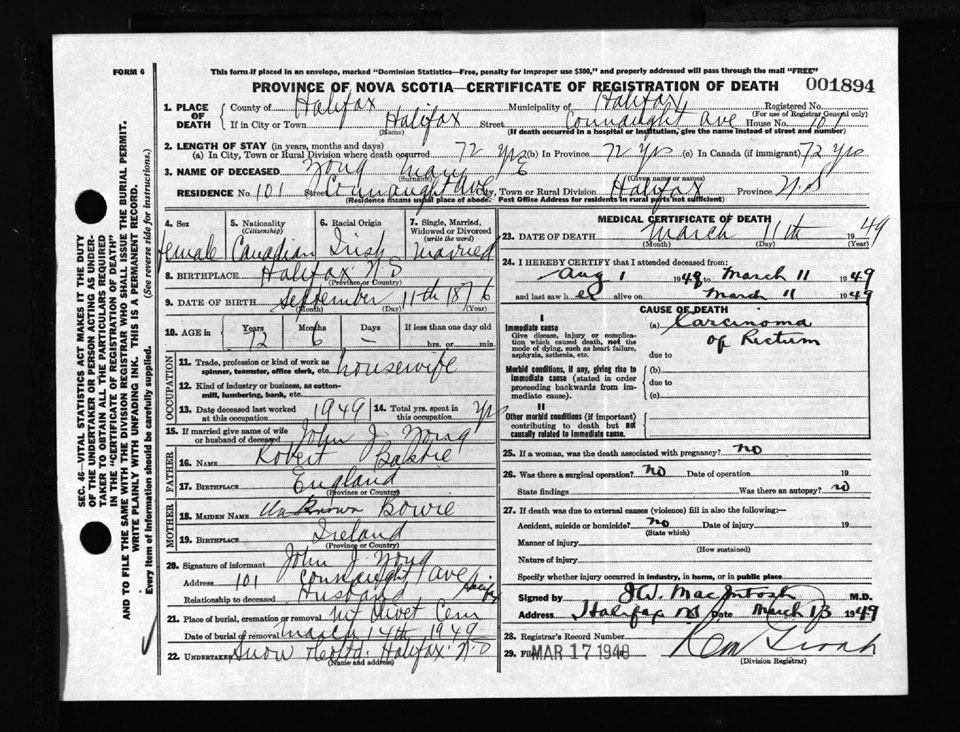 FORM 6
This form if placed in an envelope, marked "Dominion Statistics—Free, penalty for improper use $300," and properly addressed will pass through the mail "FREE"
PROVINCE OF NOVA SCOTIA—CERTIFICATE OF REGISTRATION OF DEATH
001894
SEC. 46—VITAL STATISTICS ACT MAKES IT THE DUTY
OF THE UNDERTAKER OR PERSON ACTING AS UNDER-
TAKER TO OBTAIN ALL THE PARTICULARS REQUIRED
IN THE "CERTIFICATE OF REGISTRATION OF DEATH"
AND TO FILE THE SAME WITH THE DIVISION REGISTRAR WHO SHALL ISSUE THE BURIAL PERMIT.
WRITE PLAINLY WITH UNFADING INK. THIS IS A PERMANENT RECORD.
Every item of information should be carefully supplied. (See reverse side for instructions.)
1. PLACE OF DEATH
County of Halifax Municipality of Halifax Registered No.
(For use of Registrar General only)
If in City or Town Halifax Street Connaught Ave House No. 101
(Name) (If death occurred in a hospital or institution, give the name instead of street and number)
2. LENGTH OF STAY (in years, months and days)
(a) In City, Town or Rural Division where death occurred 72 yrs (b) In Province 72 yrs (c) In Canada (if immigrant) 72 yrs
3. NAME OF DECEASED Mary E
(Surname) (Given name or names)
RESIDENCE No. 101 Street Connaught Ave City, Town or Rural Division Halifax Province N.S
(Residence means usual place of abode. Post Office Address for residents in rural parts not sufficient)
4. Sex
Female
5. Nationality
(Citizenship)
Canadian
6. Racial Origin
Irish
7. Single, Married,
Widowed or Divorced
(write the word)
Married
8. BIRTHPLACE Halifax N S
(Province or Country)
9. DATE OF BIRTH September 11th 1876
(Month) (Day) (Year)
10. AGE in
Years Months Days If less than one day old
72 6 – hrs. or min.
OCCUPATION
11. Trade, profession or kind of work as
spinner, teamster, office clerk, etc. housewife
12. Kind of industry or business, as cotton-
mill, lumbering, bank, etc.
13. Date deceased last worked
at this occupation 1949
14. Total yrs. spent in
this occupation yrs
15. If married give name of wife
or husband of deceased John J
FATHER
16. NAME Robert
17. BIRTHPLACE England
(Province or Country)
MOTHER
18. MAIDEN NAME Unknown Bowie
19. BIRTHPLACE Ireland
(Province or Country)
20. Signature of informant John J
Address 101 Connaught Ave Halifax
Relationship to deceased Husband
21. Place of burial, cremation or removal Mt Olivet Cem
Date of burial or removal March 14th 1949
22. Undertaker Snow & Co Ltd. Halifax N.S
(Name and address)
MEDICAL CERTIFICATE OF DEATH
23. DATE OF DEATH March 11th 1949
(Month) (Day) (Year)
24. I HEREBY CERTIFY that I attended deceased from:
Aug 1 1948 to March 11 1949
and last saw her alive on March 11 1949
CAUSE OF DEATH
I
Immediate cause
Give disease, injury or complica-
tion which caused death, not the
mode of dying, such as heart failure,
asphyxia, asthenia, etc.
(a) Carcinoma
of Rectum
due to
Morbid conditions, if any, giving rise to
immediate cause (stated in order
proceeding backwards from im-
mediate cause).
(b)
due to
(c)
II
Other morbid conditions (if important)
contributing to death but not
causally related to immediate cause.
25. If a woman, was the death associated with pregnancy? no
26. Was there a surgical operation? no Date of operation 19
State findings Was there an autopsy? no
27. If death was due to external causes (violence) fill in also the following:—
Accident, suicide or homicide? no Date of injury 19
(State which)
Manner of injury
(How sustained)
Nature of injury
Specify whether injury occurred in industry, in home, or in public place
Signed by J.W. MacIntosh M.D.
Address Halifax NS Date March 13 1949
28. Registrar's Record Number
29. Filed MAR 17 1949
(Division Registrar)